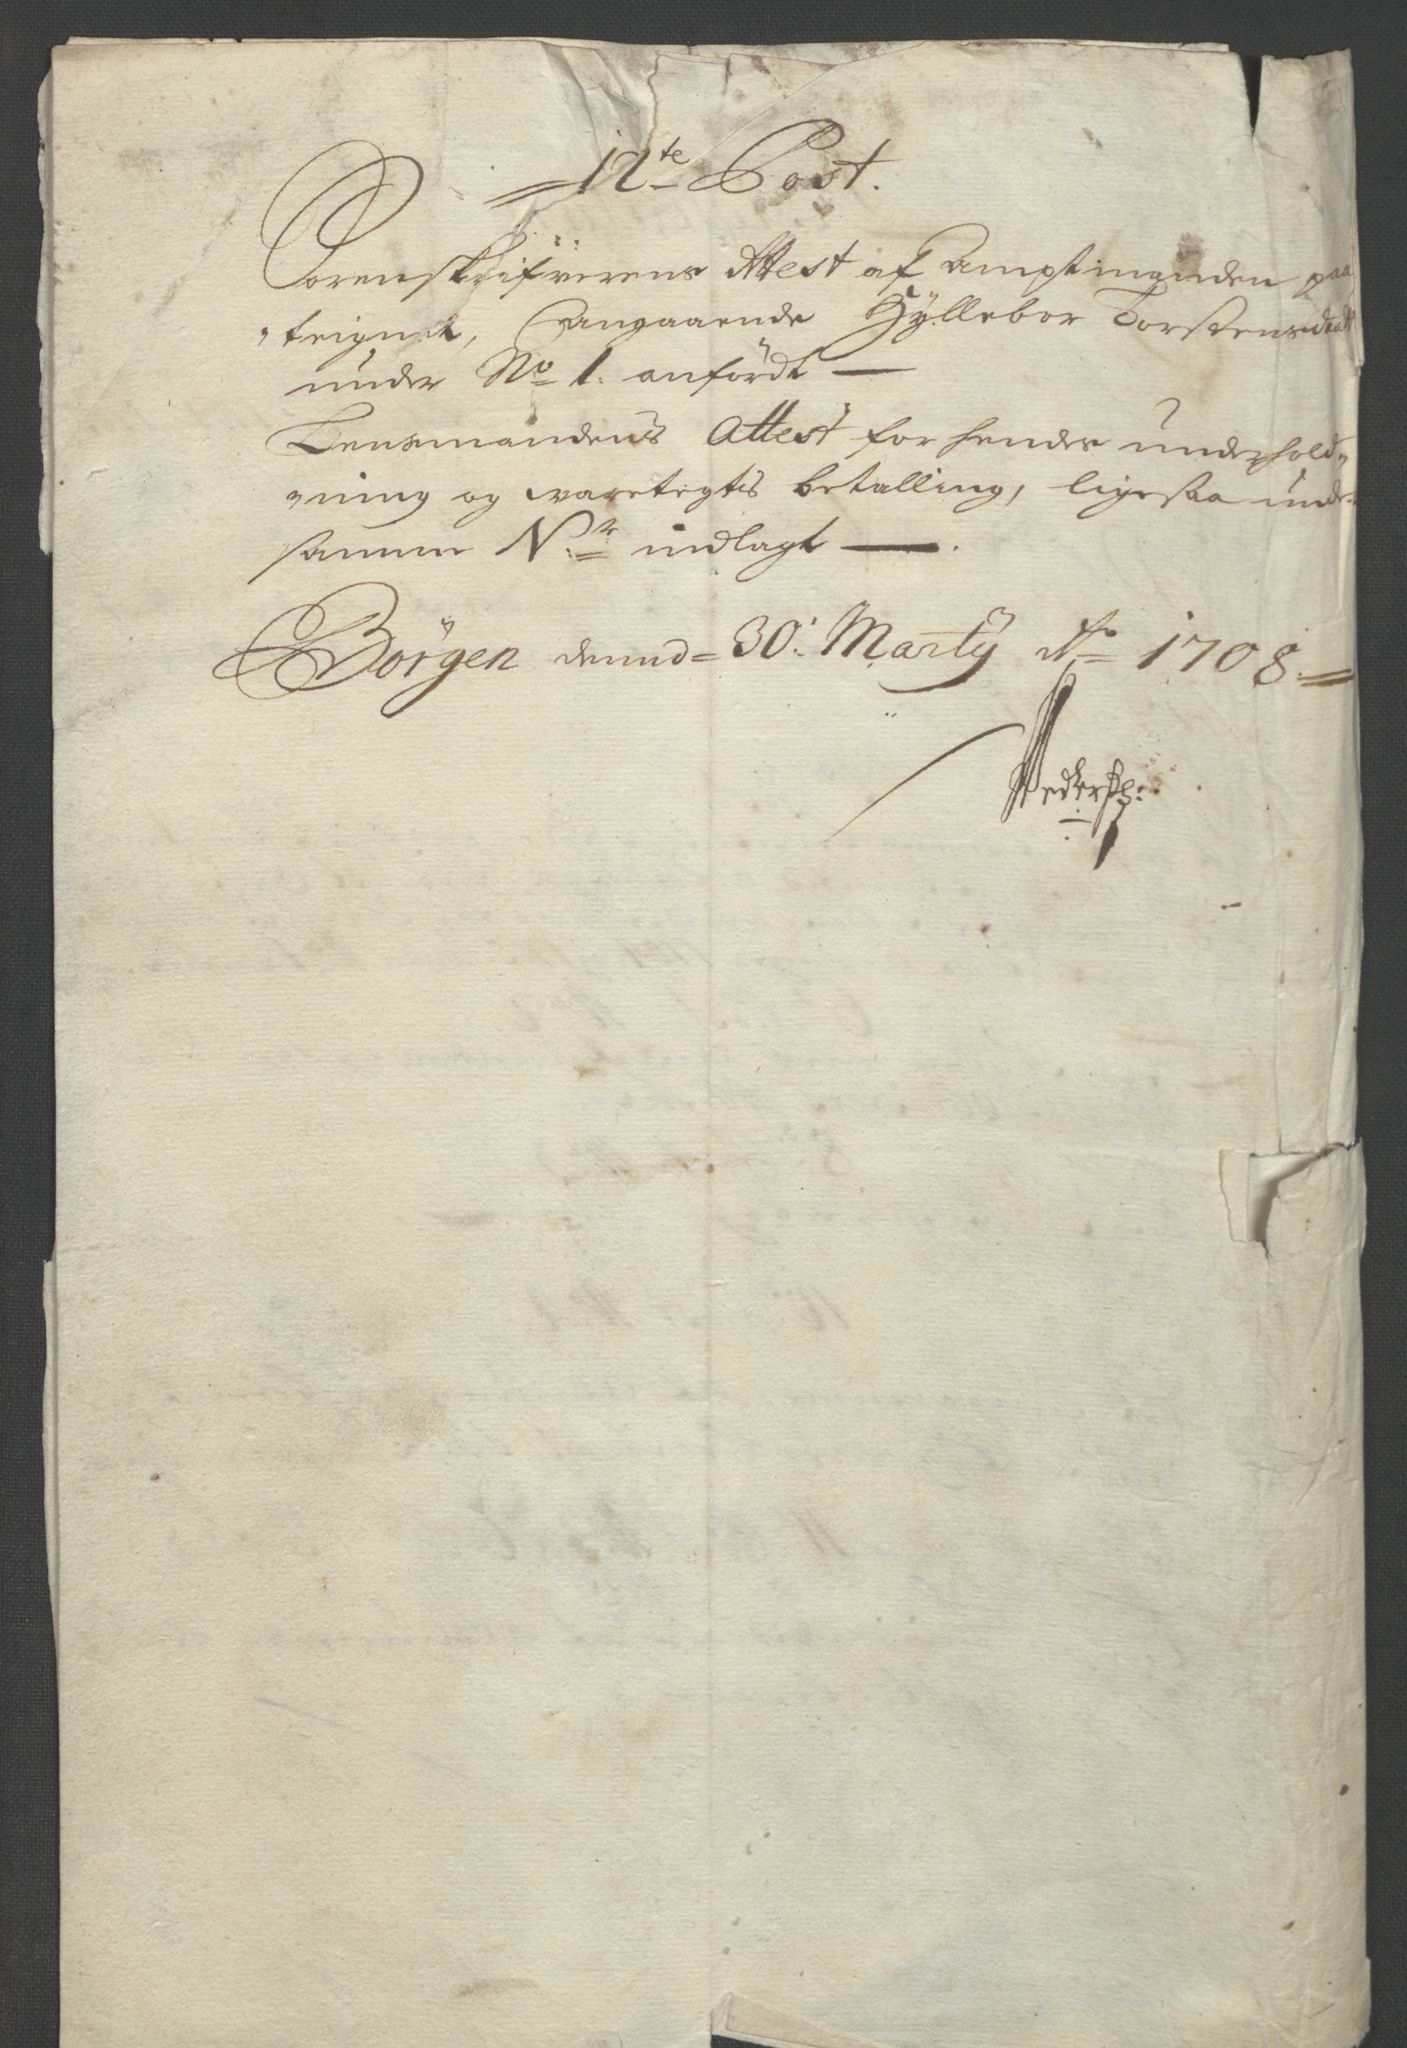 12te Post.
Sorenskrifverens Attest af Amptmanden paa
teignet, Angaaende Gyllebor Torstensdatt
under No 1. anfördt —
Lensmandens Attest for hendes underhold„
„ning og waretegts betalling, ligesaa under
samme Nr. indlagt —.
Börgen dennd= 30. Marty Ao 1708.